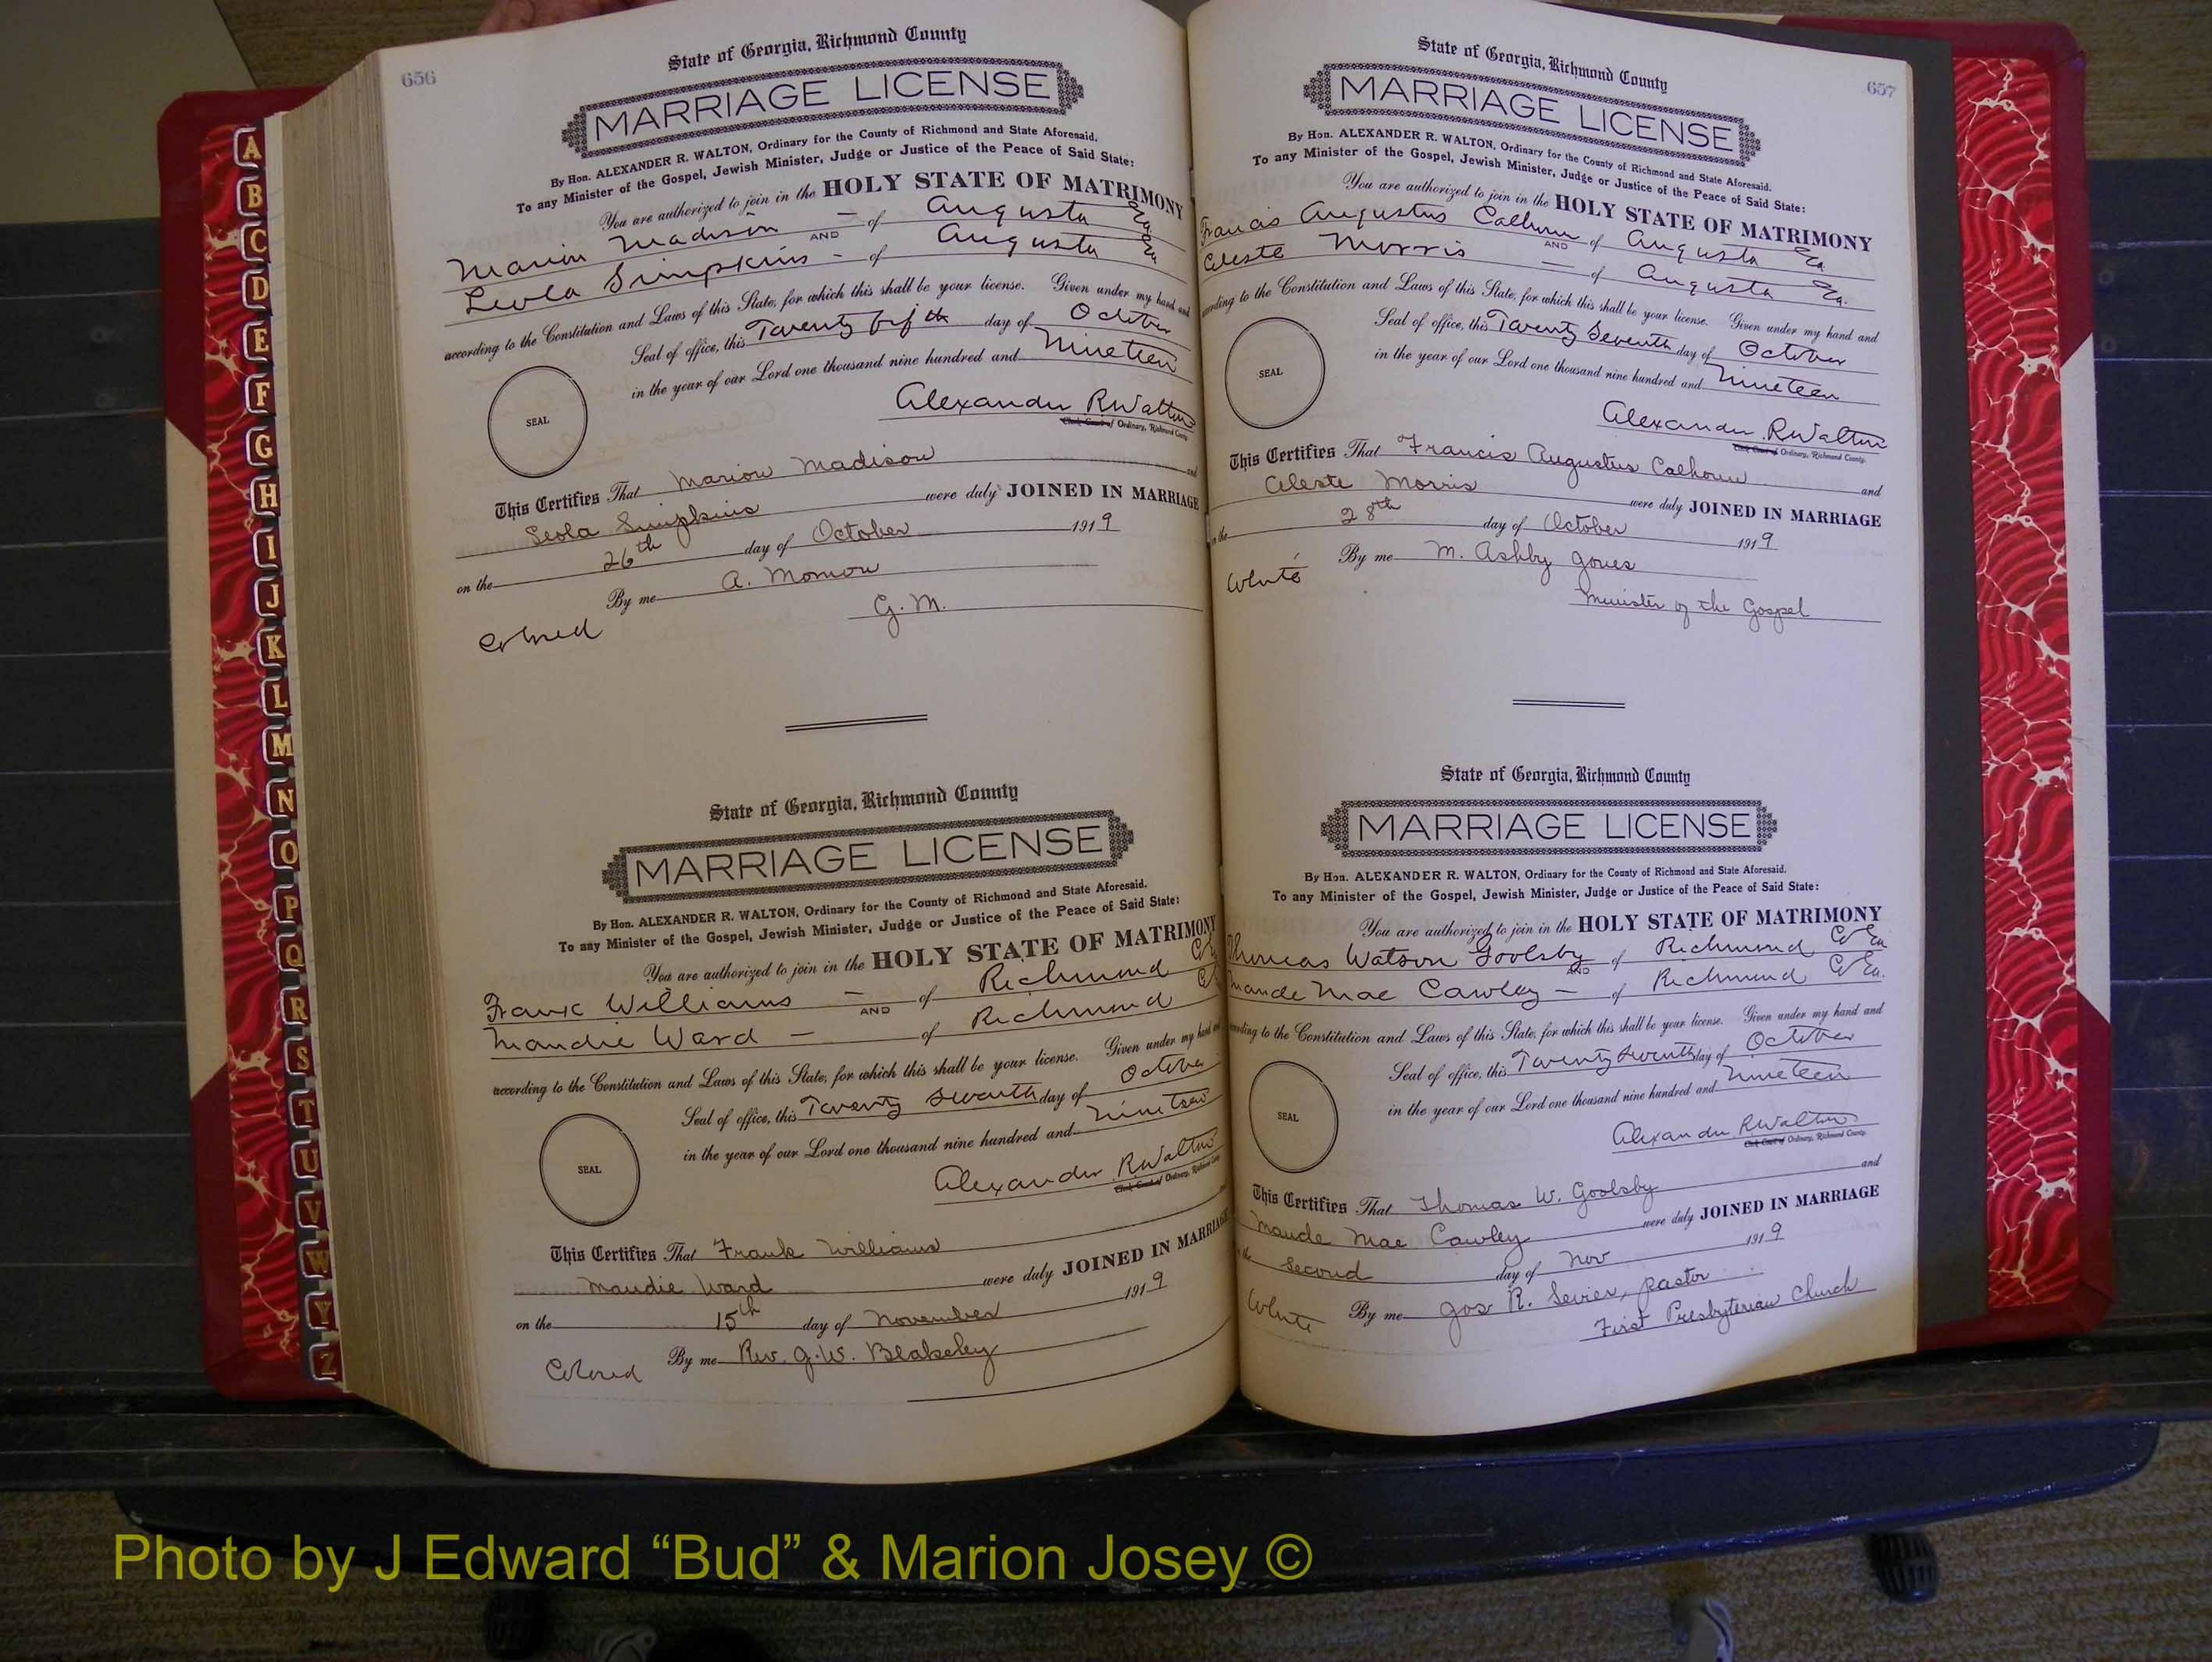 656
State of Georgia, Richmond County
MARRIAGE LICENSE
By Hon. ALEXANDER R. WALTON, Ordinary for the County of Richmond and State Aforesaid.
To any Minister of the Gospel, Jewish Minister, Judge or Justice of the Peace of Said State:
You are authorized to join in the HOLY STATE OF MATRIMONY
Marion Madison — of Augusta Ga.
AND
Leola Simpkins - of Augusta Ga
according to the Constitution and Laws of this State, for which this shall be your license. Given under my hand and
Seal of office, this Twenty fifth day of October
in the year of our Lord one thousand nine hundred and Nineteen
SEAL
Alexander R Walton
Clerk Court of Ordinary, Richmond County.
This Certifies That Marion Madison and
Leola Simpkins were duly JOINED IN MARRIAGE
on the 26th day of October 1919
By me A.
G. M.
Colored
State of Georgia, Richmond County
MARRIAGE LICENSE
By Hon. ALEXANDER R. WALTON, Ordinary for the County of Richmond and State Aforesaid.
To any Minister of the Gospel, Jewish Minister, Judge or Justice of the Peace of Said State:
You are authorized to join in the HOLY STATE OF MATRIMONY
Frank Williams — of Richmond Co
AND
Maudie Ward — of Richmond Co
according to the Constitution and Laws of this State, for which this shall be your license. Given under my hand and
Seal of office, this Twenty Seventh day of October
in the year of our Lord one thousand nine hundred and Nineteen
SEAL
Alexander R Walton
Clerk Court of Ordinary, Richmond County
This Certifies That Frank Williams
Maudie Ward were duly JOINED IN MARRIAGE
on the 15th day of November 1919
By me Rev. G. W. Blakeley
Colored
657
State of Georgia, Richmond County
MARRIAGE LICENSE
By Hon. ALEXANDER R. WALTON, Ordinary for the County of Richmond and State Aforesaid.
To any Minister of the Gospel, Jewish Minister, Judge or Justice of the Peace of Said State:
You are authorized to join in the HOLY STATE OF MATRIMONY
Francis Augustus Calhoun of Augusta Ga.
AND
Celeste Morris — of Augusta Ga.
according to the Constitution and Laws of this State, for which this shall be your license. Given under my hand and
Seal of office, this Twenty Seventh day of October
in the year of our Lord one thousand nine hundred and Nineteen
SEAL
Alexander R Walton
Clerk Court of Ordinary, Richmond County.
This Certifies That Francis Augustus Calhoun and
Celeste Morris were duly JOINED IN MARRIAGE
on the 28th day of October 1919
By me M. Ashby Jones
Minister of the Gospel
White
State of Georgia, Richmond County
MARRIAGE LICENSE
By Hon. ALEXANDER R. WALTON, Ordinary for the County of Richmond and State Aforesaid.
To any Minister of the Gospel, Jewish Minister, Judge or Justice of the Peace of Said State:
You are authorized to join in the HOLY STATE OF MATRIMONY
Thomas Watson Goolsby of Richmond Co Ga
AND
Maude Mae Cawley — of Richmond Co Ga.
according to the Constitution and Laws of this State, for which this shall be your license. Given under my hand and
Seal of office, this Twenty Seventh day of October
in the year of our Lord one thousand nine hundred and Nineteen
SEAL
Alexander R Walton
Clerk Court of Ordinary, Richmond County.
This Certifies That Thomas W. Goolsby and
Maude Mae Cawley were duly JOINED IN MARRIAGE
the Second day of Nov 1919
By me Jos R. Sevier, pastor
First Presbyterian Church
White
A
B
C
D
E
F
G
H
I
J
K
L
M
N
O
P
Q
R
S
T
U
V
W
Y
Z
Photo by J Edward “Bud” & Marion Josey ©